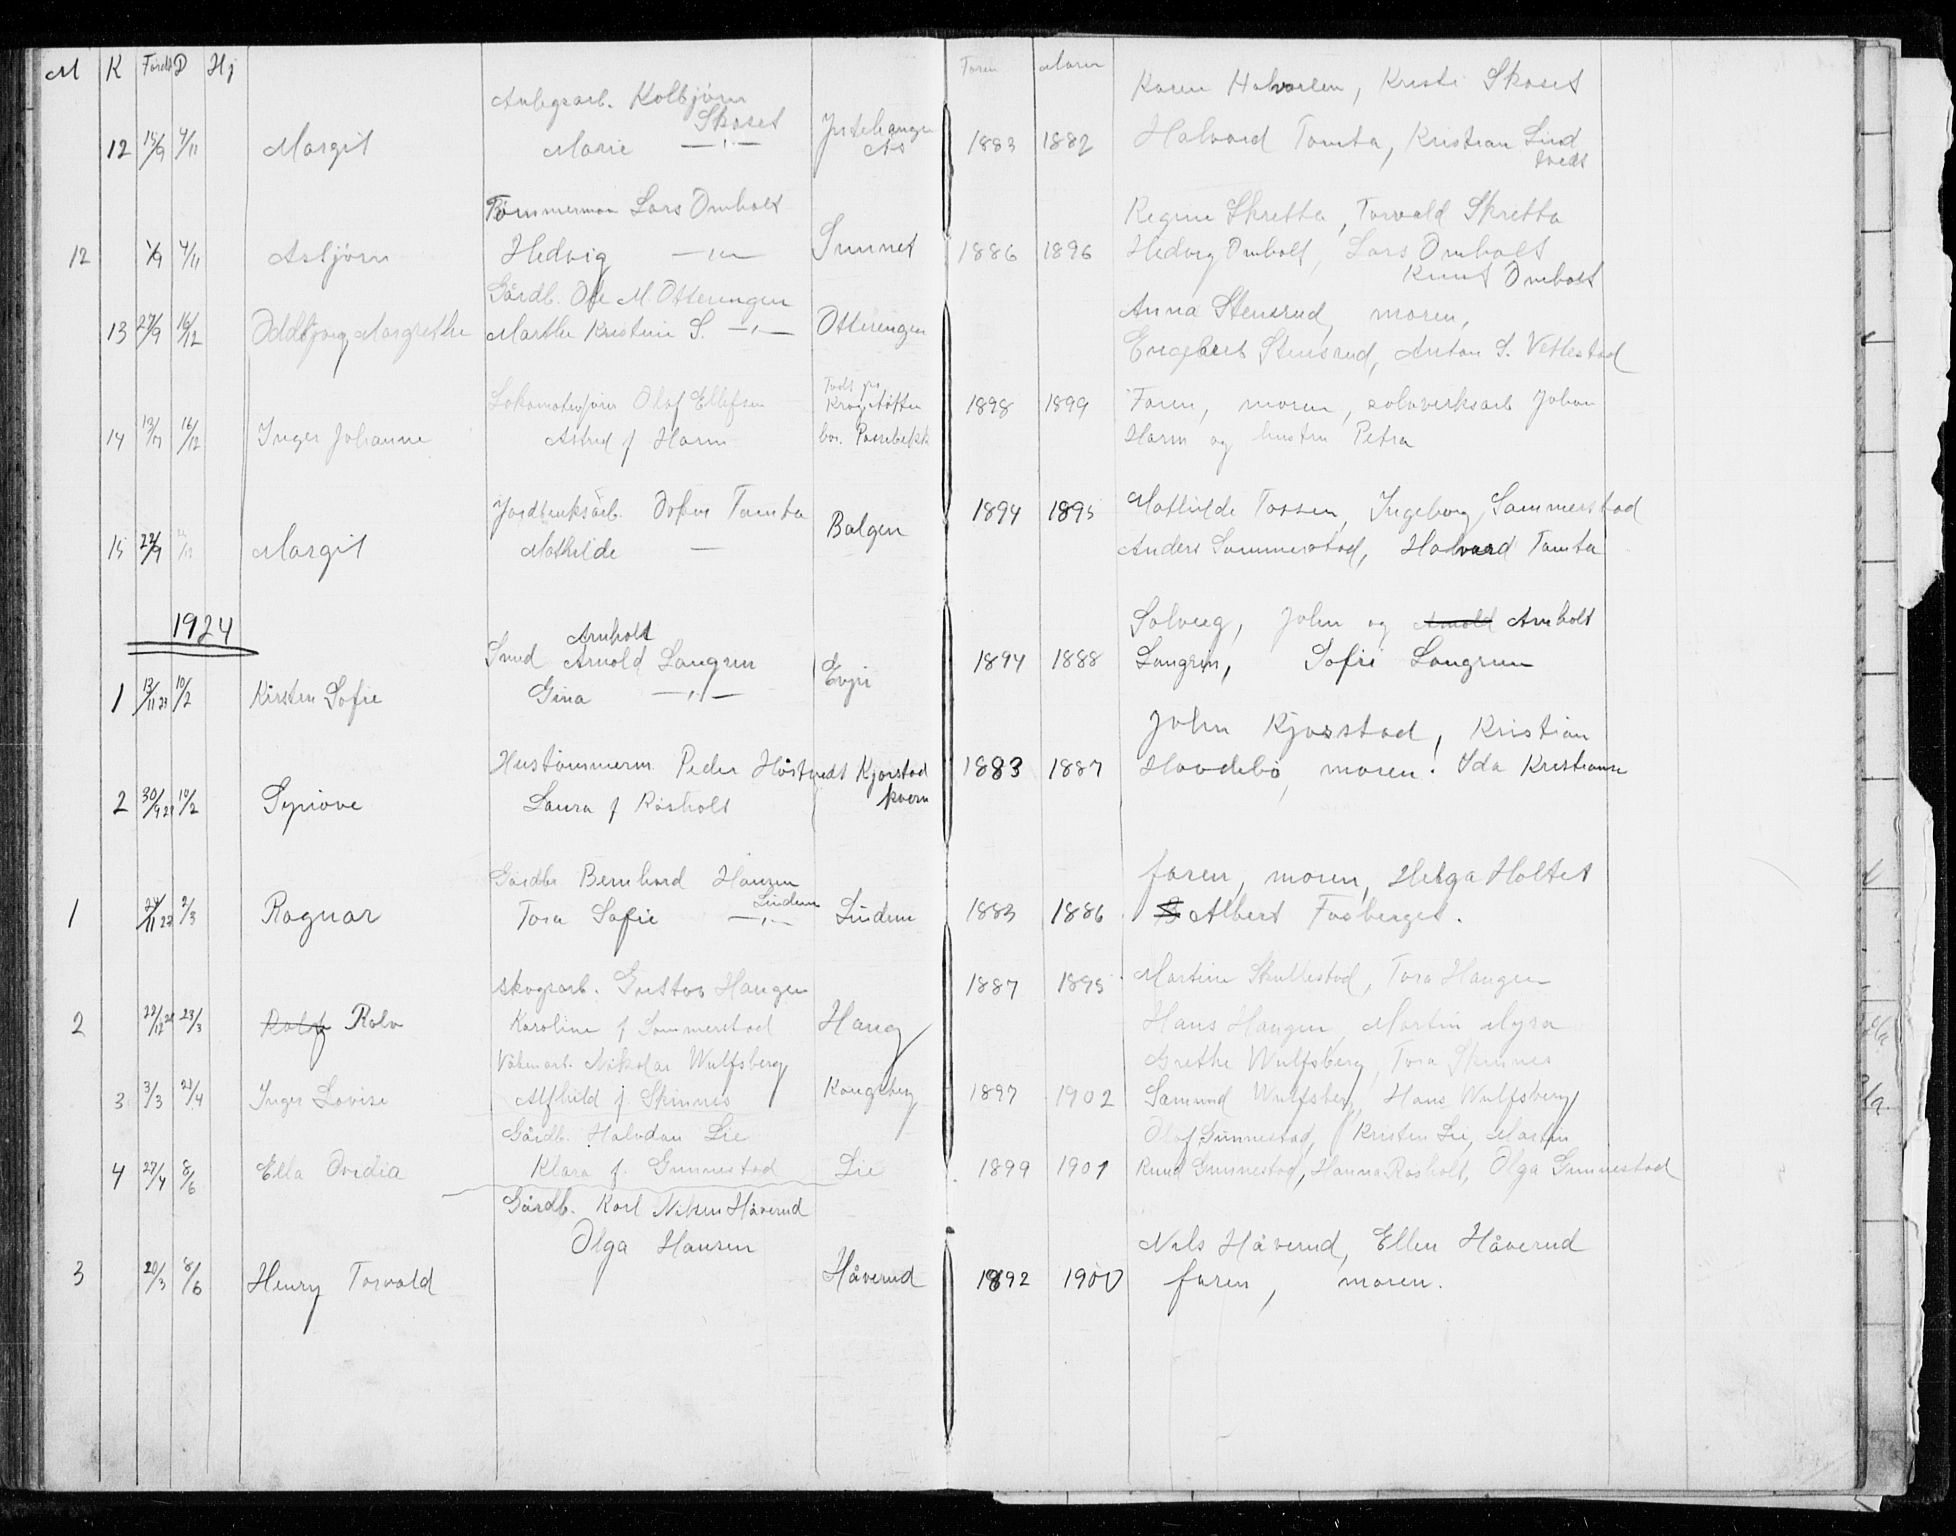 M K Født D Hj Faren Moren
Anlegsarb. Kolbjørn Karen Halvorsen, Kristi Skaset
Skaset
12 15/9 4/11 Margit Marie —"— Ås 1883 1882 Halvard Tomta, Kristian Lind
tveds
Tømmerman Lars Omholt Regine Skretta, Torvald Skretta
12 1/9 4/11 Asbjørn Hedvig —"— Sunnet 1886 1896 Hedvig Omholt, Lars Omholt
Knut Omholt
Gårdb. Ole M. Otterengen Anna Stensrud, moren,
13 27/9 16/12 Oddbjørg Margrethe Marthe Kristine S. —"— Otterengen Engebret Stensrud, Anton S. Vettestad
Lokomotivfører Olaf Ellefsen Født på Kragstøtten 1898 1899 Faren, moren, solvverksarb Johan
14 13/7 16/12 Inger Johanne Astrid f Harm bor. Passebekk Harm og hustru Petra
Jordbruksarb. Tomta Balgen 1894 1895 Mathilde Tossen, Ingeborg Sommerstad
15 22/9 Margit Mathilde — Anders Sommerstad, Halvard Tomta
1924
Arnholt Solveig, John og Arnold Arnholt
Smed Arnold Langren Evju 1894 1888 Langren, Sofie Langrenn
1 13/11 23 10/2 Kirsten Sofie Gina —"—
John Kjørstad, Kristian
Hustømmerm. Peder Håstvedt Kjørstad 1883 1887 Hovdebø, moren. Ida Kristianse
kvern
2 30/9 23 10/2 Synnøve Laura f Røsholt
Gårdbr Bernhard Hansen faren, moren, Helga Holtet
Lindem
1 24/11 23 2/3 Ragnar Tora Sofie —"— Lindem 1883 1886 S Albert Fosberget.
skogsarb. Gustav Haugen 1887 1895 Martine Skullestad, Tora Haugen
2 22/12 23 23/3 Rolf Rolv Karoline f Sommerstad Haug Hans Haugen, Martin Myra
Våbenarb. Nikolai Wulfsberg Grethe Wulfsberg, Tora Skinnes
3 3/3 21/4 Inger Lovise Alfhild f. Skinnes Kongsberg 1897 1902 Samund Wulfsberg, Hans Wulfsberg
Gårdb. Halvdan Lie Olaf Gunnestad, Kristen Lie, Martin
4 27/4 8/6 Ella Ovidia Klara f. Gunnestad Lie 1899 1901 Knud Gunnestad, Hanna Røsholt, Olga Gunnestad
Gårdb. Karl Nilsen Håverud
Olga Hansen Nils Håverud, Ellen Håverud
3 20/3 8/6 Henry Torvald Håverud 1892 1900 faren, moren.